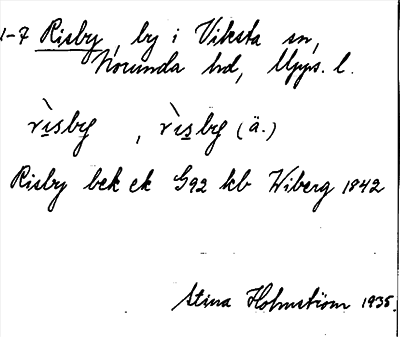 1-7 Risby, by i Viksta sn,
Norunda hd, Upps. l.
rìsby, rìsby (ä.)
Risby bek ek G92 kb Wiberg 1842
Stina Holmström 1935.